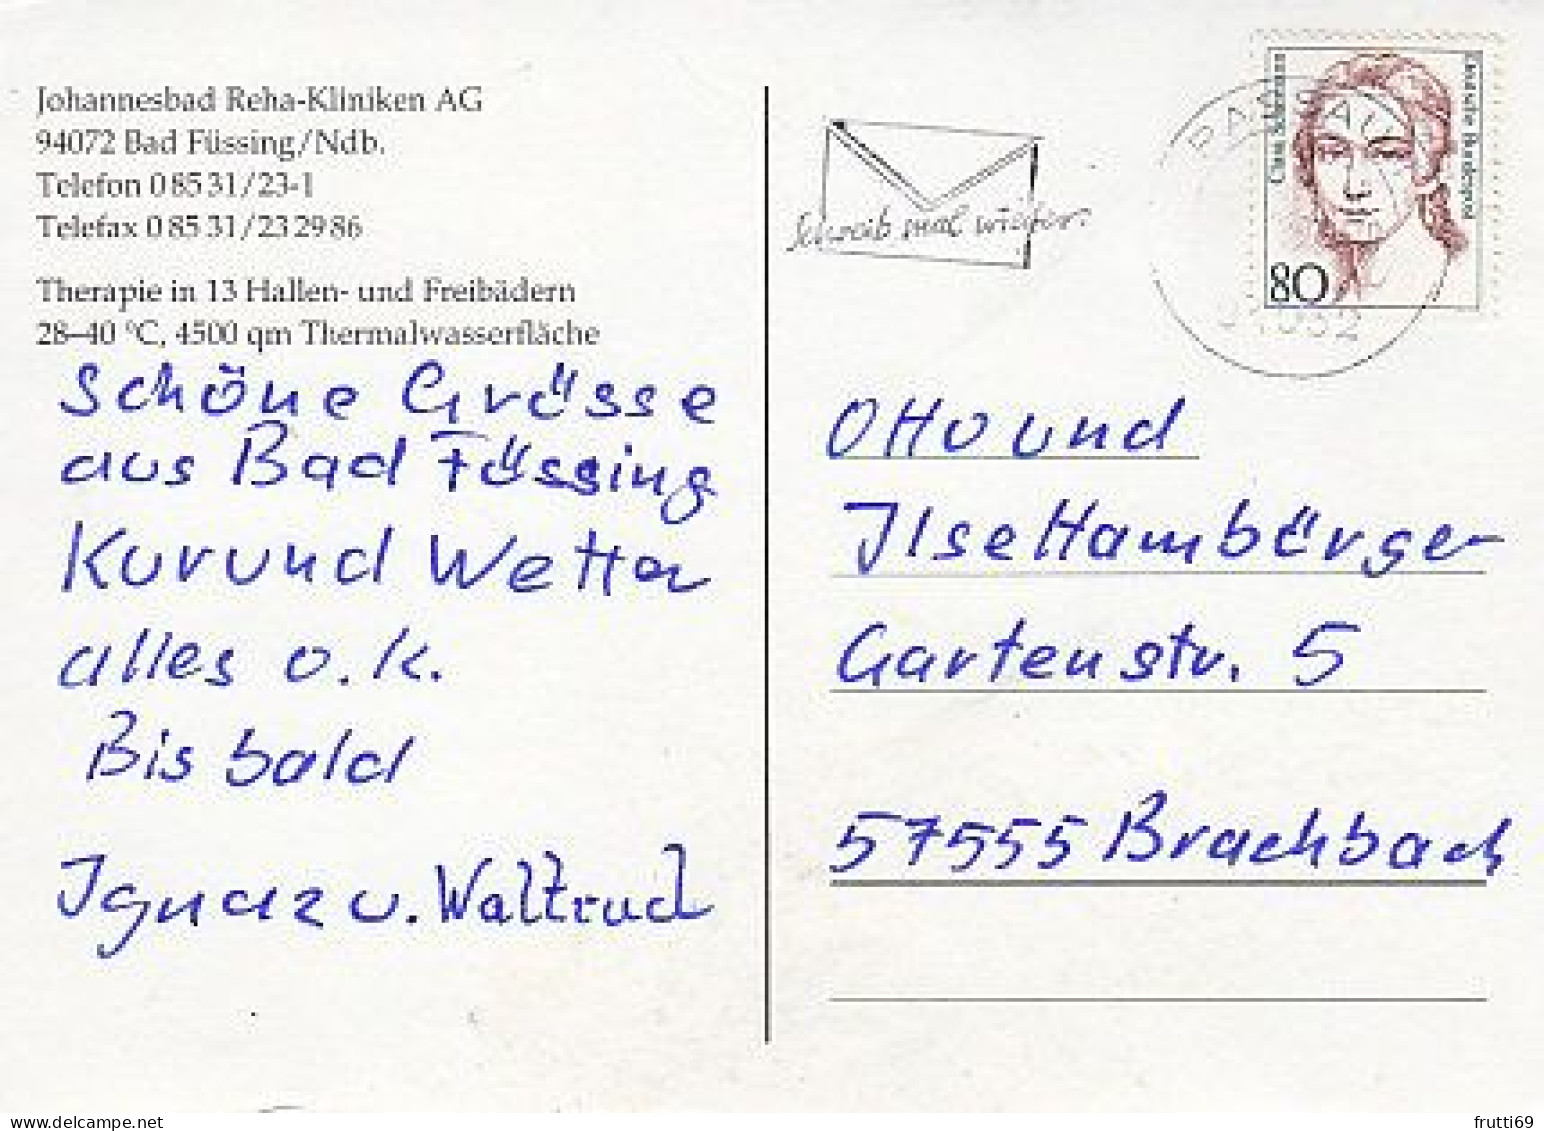 Johannesbad Reha-Kliniken AG
94072 Bad Füssing/Ndb.
Telefon 0 85 31/23-1
Telefax 0 85 31/23 29 86
Therapie in 13 Hallen- und Freibädern
28–40 °C, 4500 qm Thermalwasserfläche
Schöne Grüsse
aus Bad Füssing
Kur und Wetter
alles o.k.
Bis bald
Ignaz u. Waltrud
Schreib mal wieder.
PASSAU
Clara Schumann
Deutsche Bundespost
80
Otto und
Ilse Hambürger
Gartenstr. 5
57555 Brachbach
frutti69